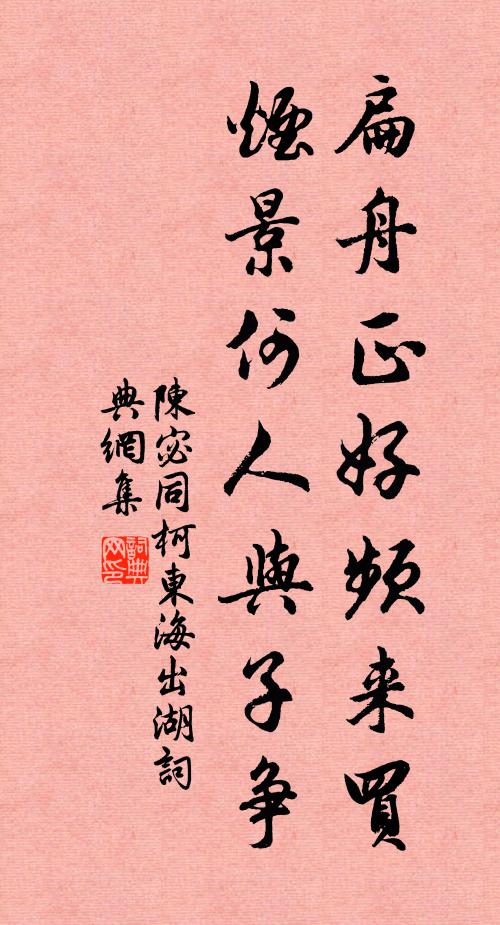 扁舟正好頻来買
煙景何人與子争
陳宓同柯東海出湖詞
典網集
詞典网印